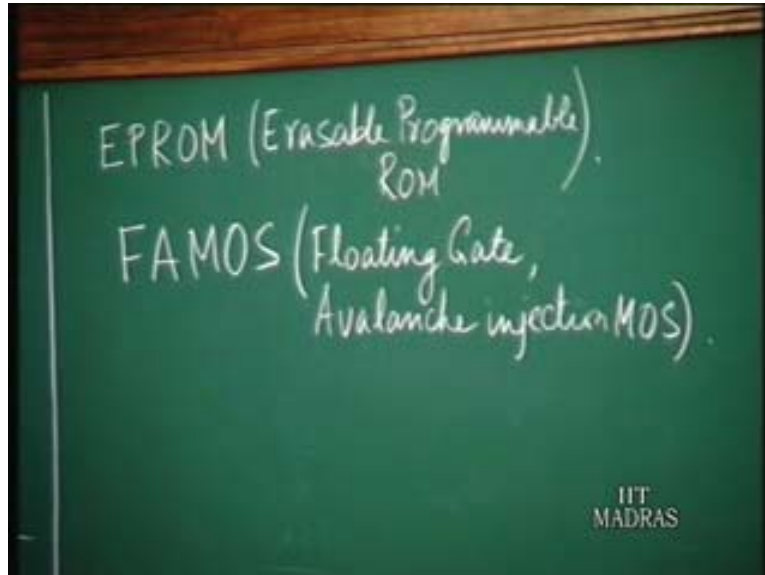 EPROM (Erasable Programmable).
ROM
FAMOS (Floating Gate,
Avalanche injection MOS).
IIT
MADRAS